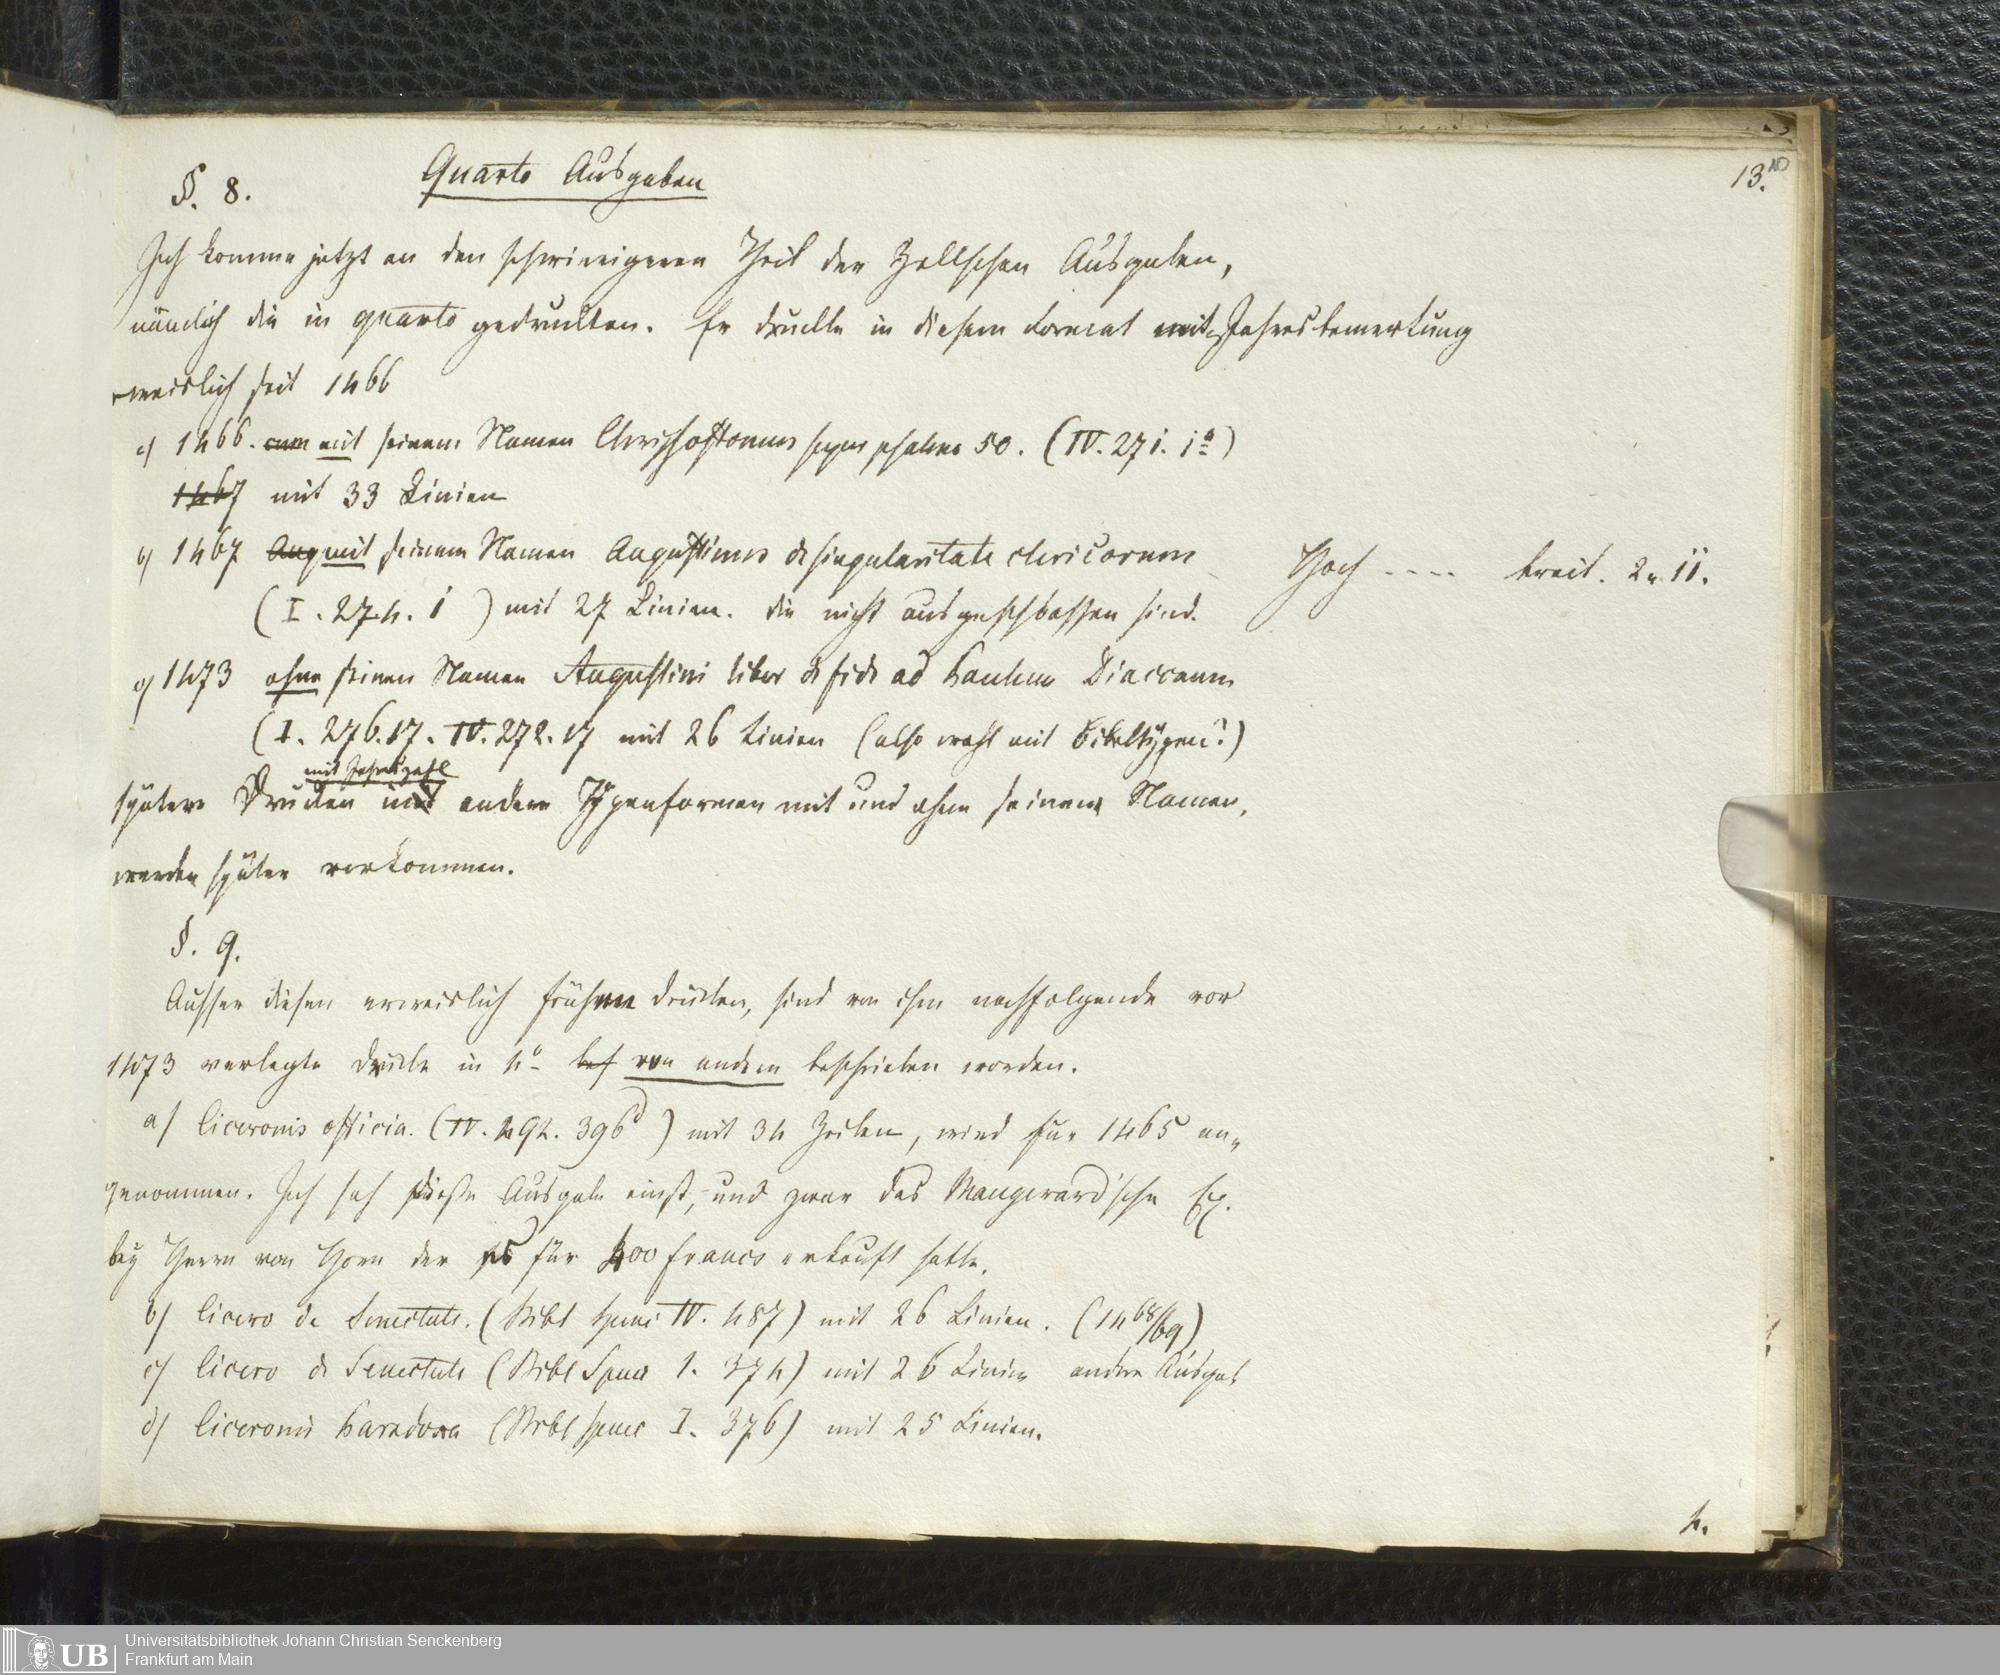 13.
§. 8. Quarto Ausgaben
Ich komme jetzt an den schwierigeren Theil der Zellschen Ausgaben,
nämlich die in quarto gedruckten. Er druckte in diesem Format mit Jahresbemerkung
erweislich seit 1466
a) 1466. cum mit seinem Namen Chrysostomus super psalmo 50. (IV. 271. 1a)
1467 mit 33 Linien
b) 1467 Aug mit seinem Namen Augustinus de singularitate clericorum Hoch .... breit. 2 u. 11.
(I. 274. 1 ) mit 27 Linien. die nicht ausgeschlossen sind.
c) 1473 ohne seinen Namen Augustini liber de fide ad Paulum Diaconum
(I. 276. 17. IV. 272. 17 mit 26 Linien (also wohl mit Bibeltypen?)
mit Jahrszahl
spätere Drucken mit andern Typenformen mit und ohne seinem Namen,
werden später vorkommen.
§. 9.
Ausser diesen erweislich frühern drucken, sind von ihm nachfolgende vor
1473 verlegte drucke in 4o von andern beschrieben worden.
a) Ciceronis officia. (IV. 292. 396d ) mit 34 Zeilen, wird für 1465 an„
genommen. Ich sah diese Ausgabe einst, und zwar das Maugerard'sche Ex.
bey Herrn von Horn der es für 400 francs erkauft hatte.
b) Cicero de Senectute. (Bibl Spenc IV. 487) mit 26 Linien. (1468/69)
c) Cicero de Senectute (Bibl Spenc 1. 374) mit 26 Linien andre Ausgab
d) Ciceronis Paradoxa (Bibl Spenc I. 376) mit 25 Linien.
4.
UB Universitätsbibliothek Johann Christian Senckenberg
Frankfurt am Main